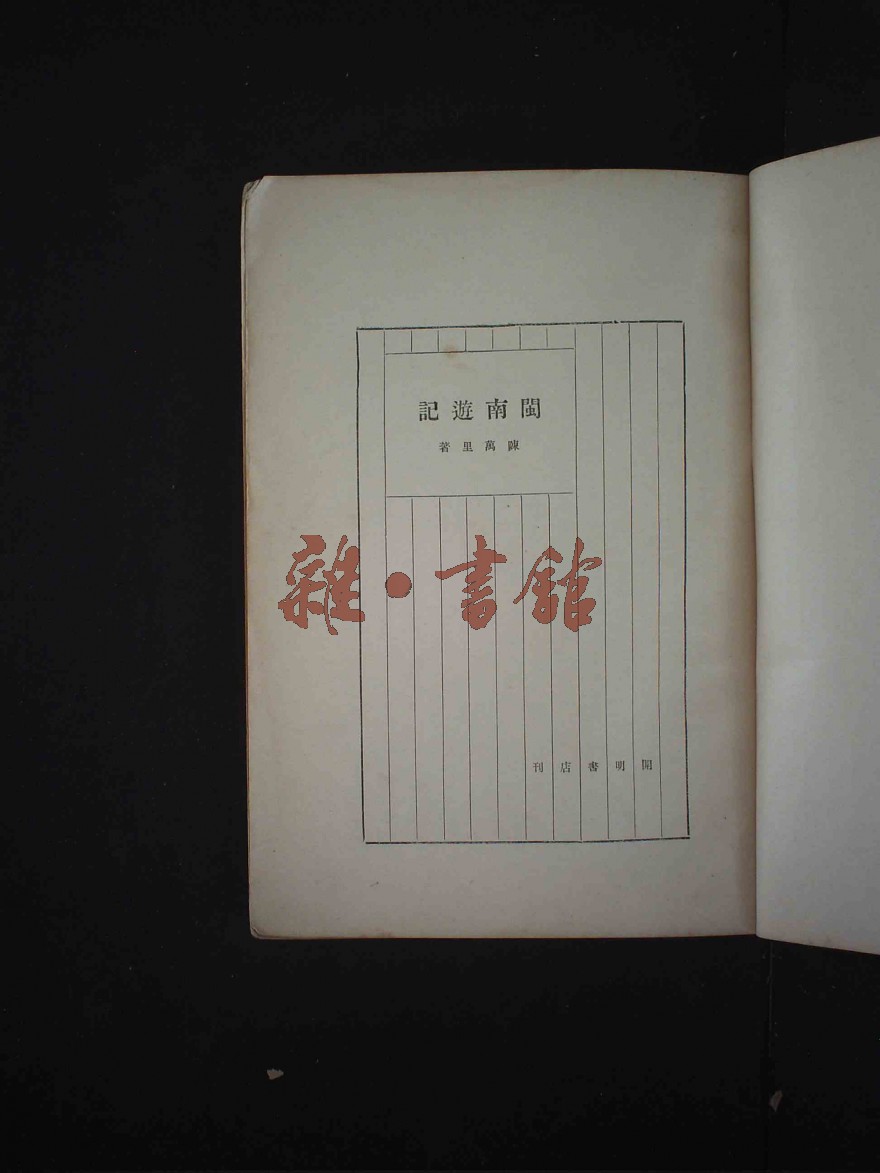 閩南遊記
陳萬里著
雜·書館
開明書店刊